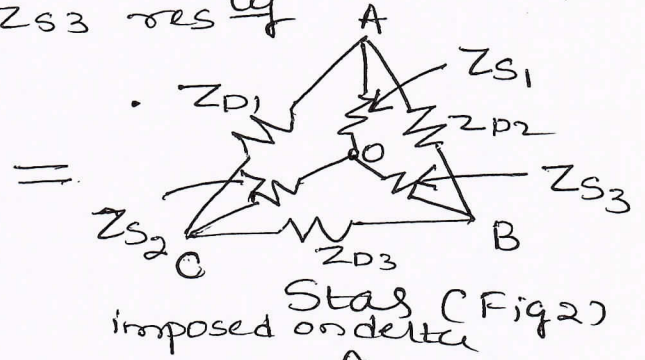 ZS3 resly
A
ZS1
ZD1
ZD2
O
=
ZS3
ZS2
B
ZD3
C
Star (Fig 2)
imposed on delta